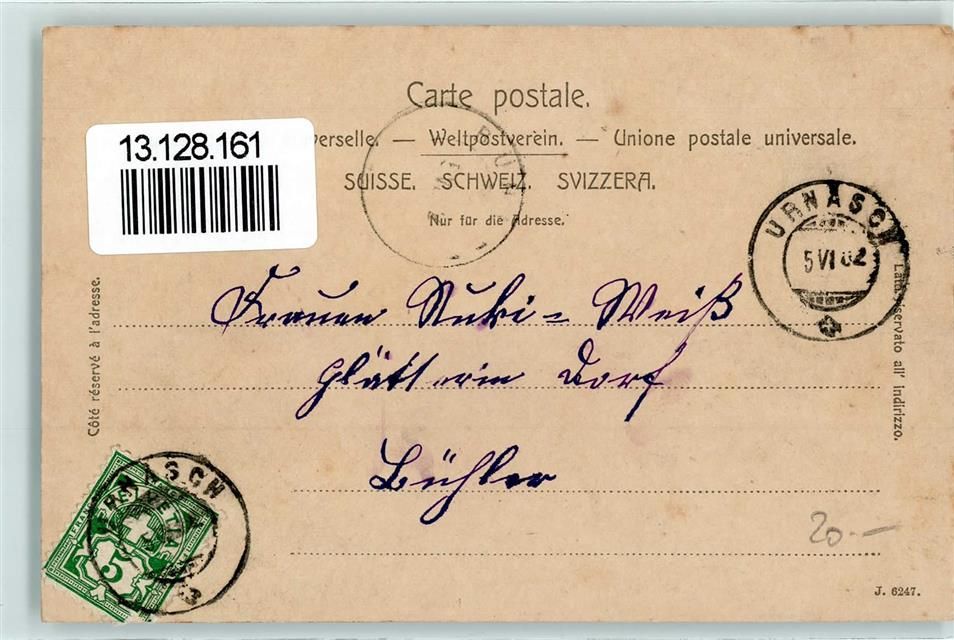 Carte postale.
13.128.161
verselle. — Weltpostverein. — Unione postale universale.
SUISSE. SCHWEIZ. SVIZZERA.
Nur für die Adresse.
URNÄSCH
5 VI 02
Côté réservé à l'adresse.
Lato riservato all' indirizzo.
Frauen - Weiß
Glätterin Dorf
Bühler
SCH
5
20.-
J. 6247.